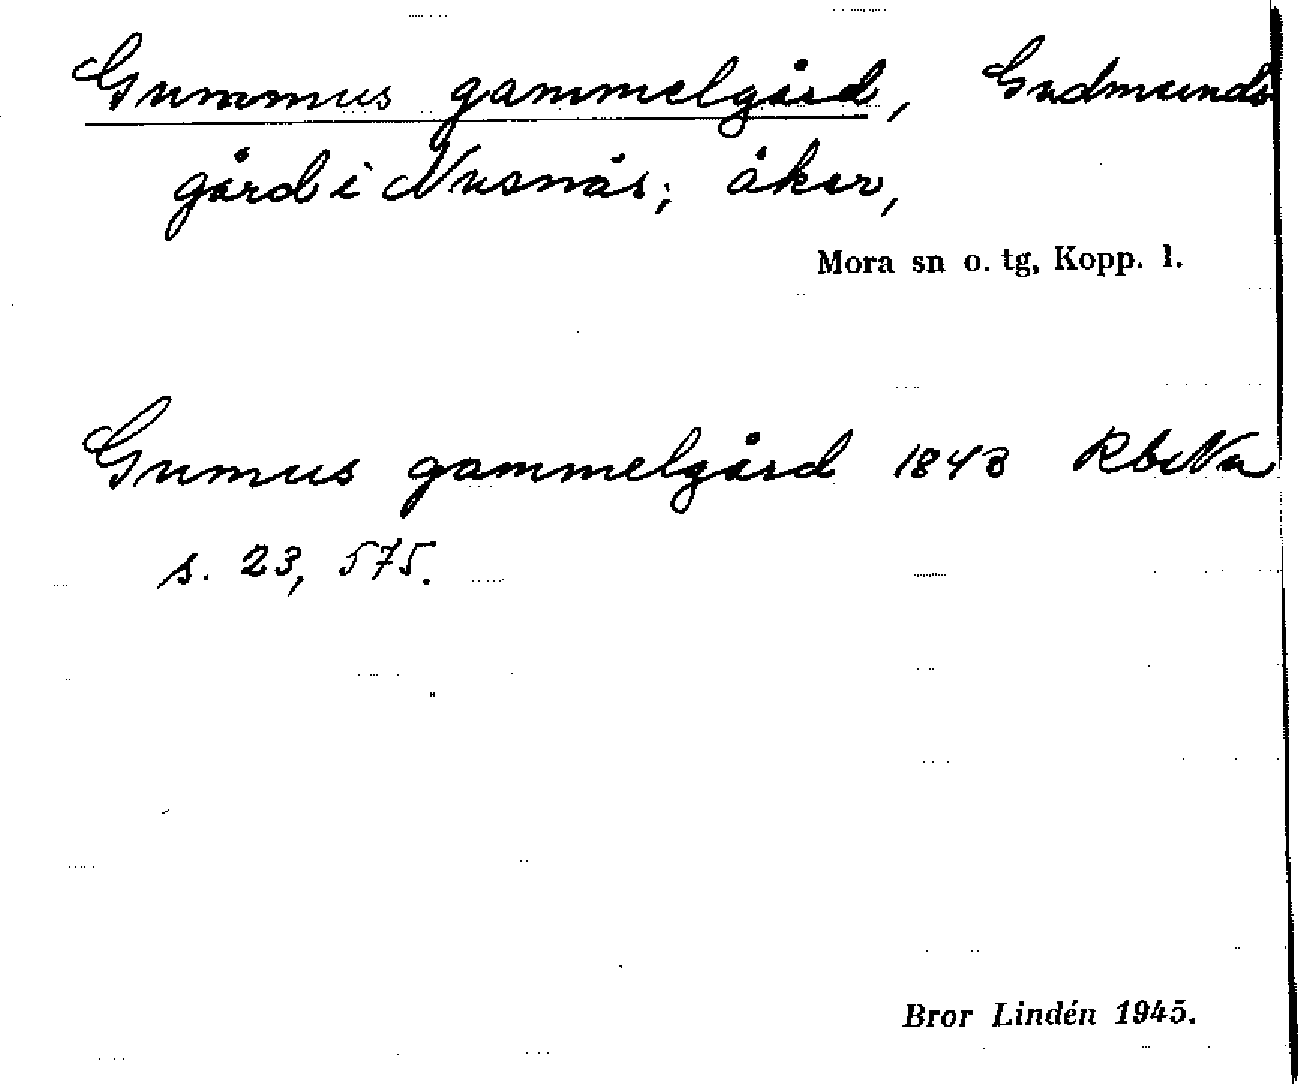 Gummus gammelgård, Gudmunds
gård i Nusnäs; åker,
Mora sn o. tg, Kopp. l.
Gumus gammelgård 1843 RbNu
s. 23, 575.
Bror Lindén 1945.